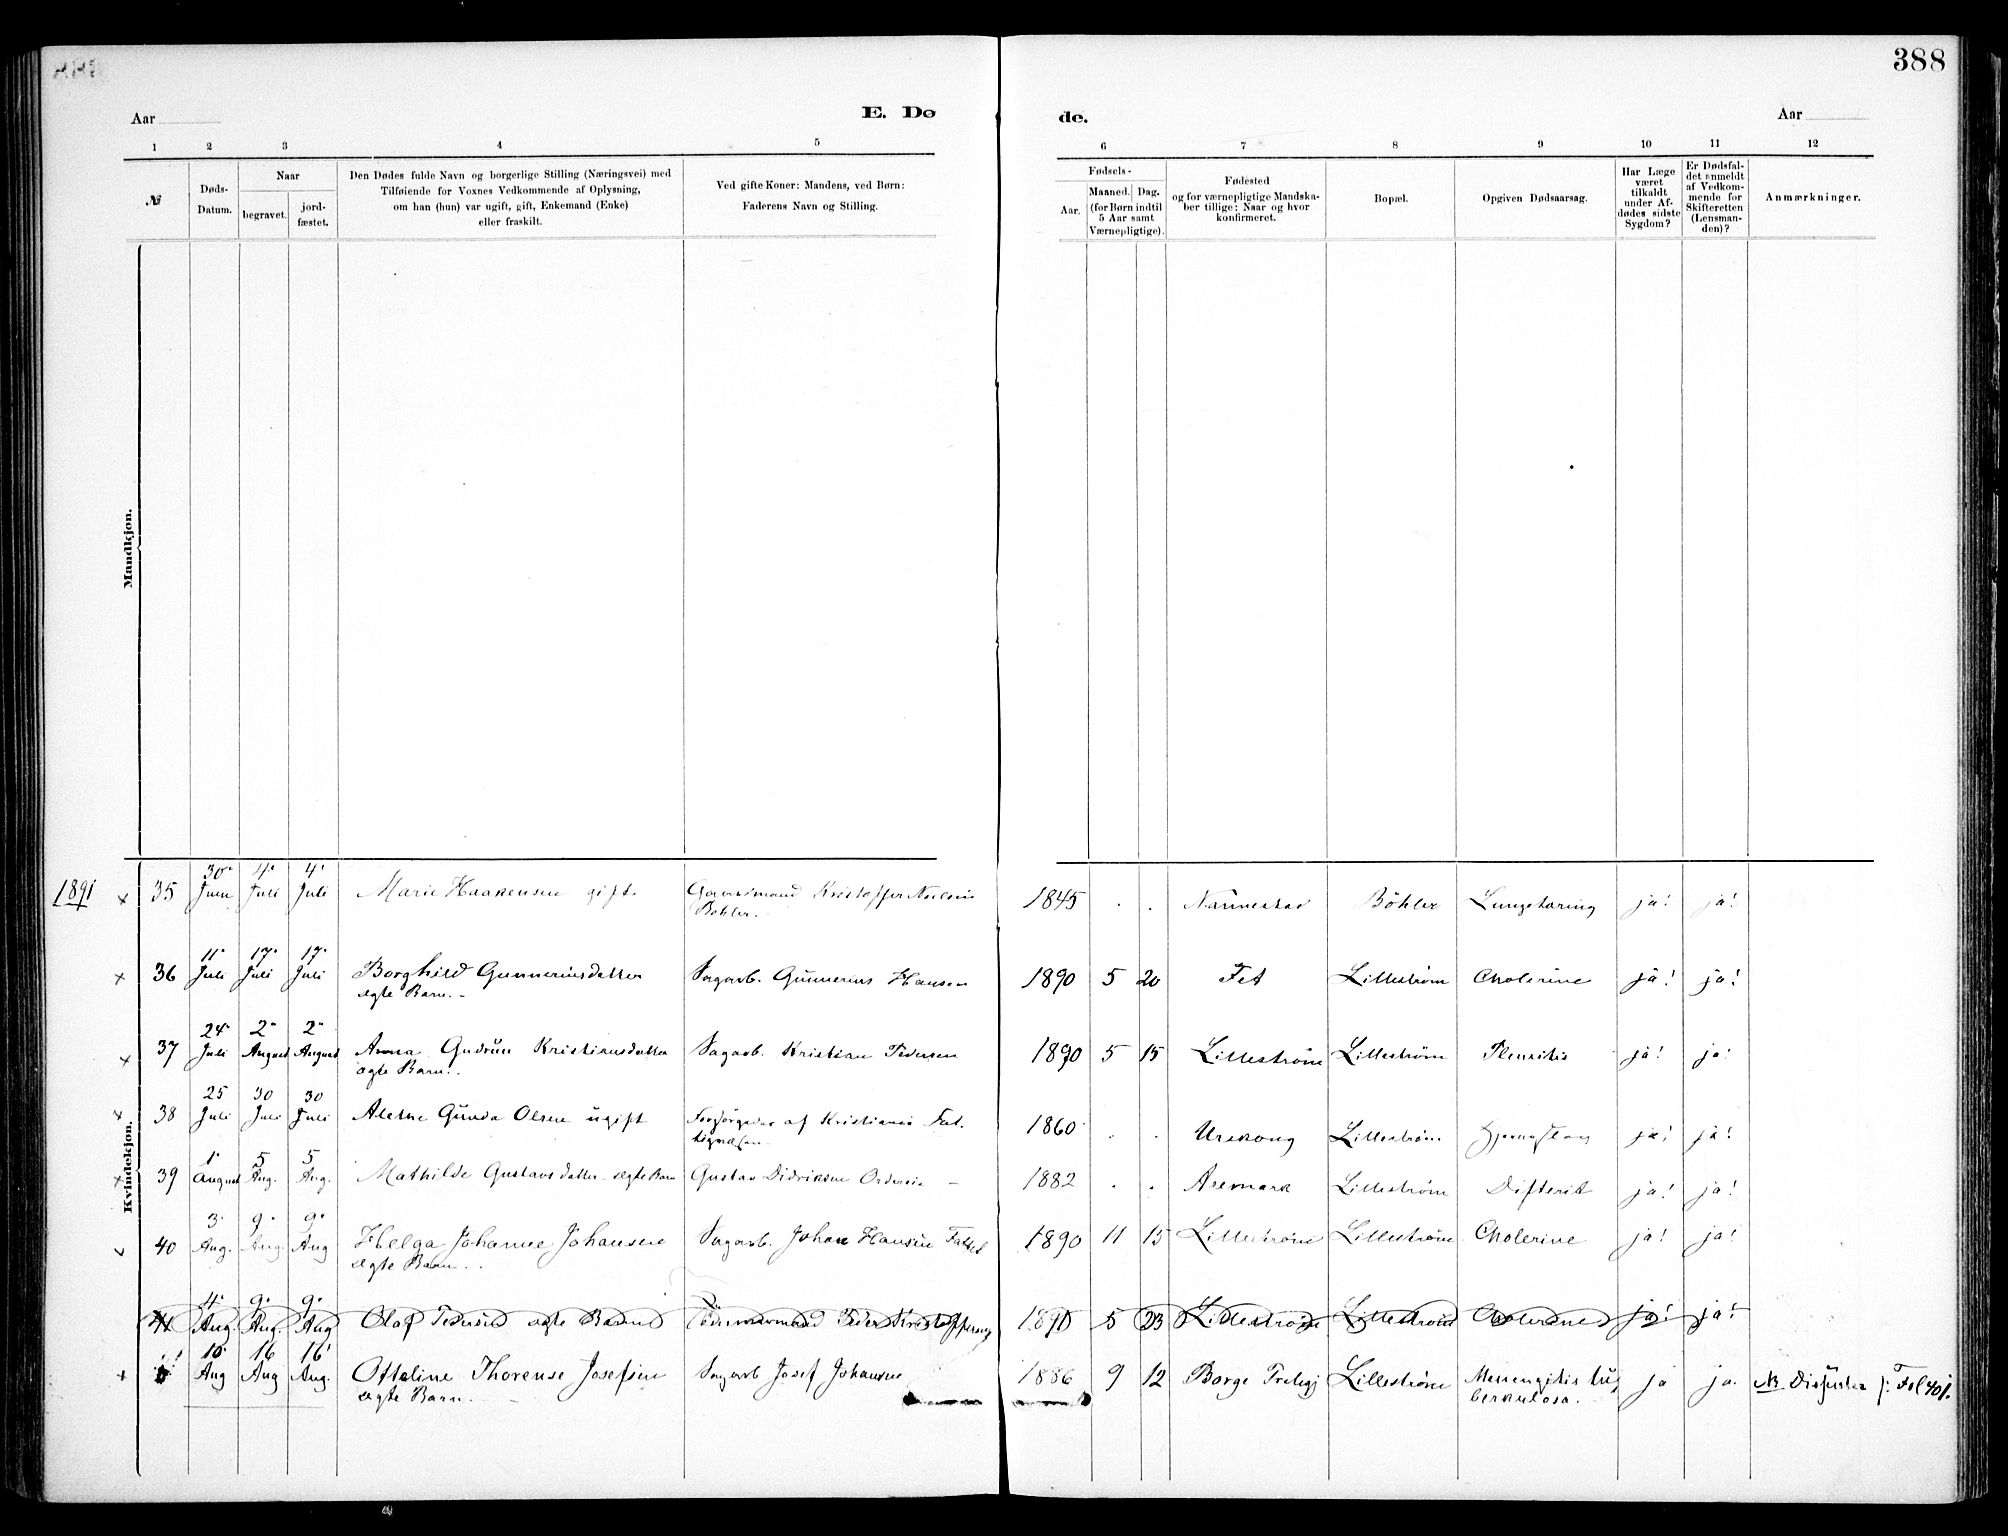 388
Aar
E. Dø
de.
Aar
1 2 3 4 5 6 7 8 9 10 11 12
№
Døds-
Datum.
Naar
begravet.
jord-
fæstet.
Den Dødes fulde Navn og borgerlige Stilling (Næringsvei) med
Tilføiende for Voxnes Vedkommende af Oplysning,
om han (hun) var ugift, gift, Enkemand (Enke)
eller fraskilt.
Ved gifte Koner: Mandens, ved Børn:
Faderens Navn og Stilling.
Fødsels-
Aar.
Maaned. Dag.
(for Børn indtil
5 Aar samt
Værnepligtige).
Fødested
og for værnepligtige Mandska-
ber tillige: Naar og hvor
konfirmeret.
Bopæl.
Opgiven Dødsaarsag.
Har Læge
været
tilkaldt
under Af-
dødes sidste
Sygdom?
Er Dødsfal-
det anmeldt
af Vedkom-
mende for
Skifteretten
(Lensman-
den)?
Anmærkninger.
Mandkjøn.
Kvindekjøn.
1891
30. 4. 4.
35 Juni Juli Juli Marie Haakensen gift Gaardmand Kristoffer Neilsen 1845 . . Nannestad Böhler Lungetæring ja! ja!
Böhler.
11. 17. 17.
36 Juli Juli Juli Borghild Gunneriusdatter Sagarb. Gunnerius Hansen 1890 5 20 Fet Lilleström Cholerine ja! ja!
ægte Barn.
24. 2. 2.
37 Juli August August Anna Gudrun Kristiansdatter Sagarb. Kristian Pedersen 1890 5 15 Lilleström Lilleström Pleuritis ja! ja!
ægte Barn.
25 30 30
38 Juli Juli Juli Alethe Gunda Olsen ugift Forsörgedes af Kristiania Fat- 1860 . . Urskoug Lilleström ja! ja!
tigvæsen
1. 5 5
39 August Aug. Aug. Mathilde Gustavsdatter ægte Barn Gustav Didriksen 1882 . . Aremark Lilleström Difterit ja! ja!
3. 9. 9.
40 Aug. Aug. Aug Helga Johanne Johansen Sagarb. Johan Hansen 1890 11 15 Lilleström Lilleström Cholerine ja! ja!
ægte Barn.
4. 9. 9.
41 Aug. Aug. Aug Olaf Pedersen ægte Barn Peder Kristoffersen 1890 5 23 Lilleström Lilleström Cholerine ja! ja!
10 16 16
Aug Aug Aug. Ottaline Thorense Josefsen Sagarb Josef Johansen 1886 9 12 Borge Lilleström Meningitis tu- ja ja. NB
ægte Barn. berkulosa.